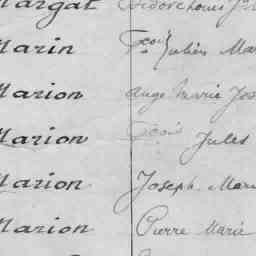 Margat Isidore Louis
Marin Fçois Julien Mar
Marion Ange Marie Jos
Marion Fçois Jules
Marion Joseph Marie
Marion Pierre Marie